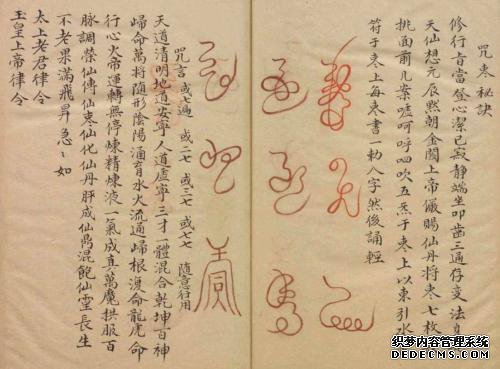 咒枣秘訣
修行者當登心潔已寂靜端坐叩齒三遍存变法身
天仙想元辰㸃朝金闕上帝儼賜仙丹將枣七枚
挑面前几案噓呵呼呬吹五炁于枣上以束引水
符于枣上每枣書一勅八字然後誦輕
咒言 或七遍 或二七 或三七 或七七 隨意行用
天道清明地道安寧人道虛寧三才一體混合乾坤百神
歸命萬將隨形陰陽涵育水火流通歸根復命龍虎命
行心火帝運轉無停煉精煉液一氣成真萬魔拱服百
脉調榮仙傳仙枣仙化仙丹肝成仙鼎混飽仙靈長生
不老果滿飛昇急〻如
太上老君律令
玉皇上帝律令
织梦内容管理系统
DEDECMS.COM